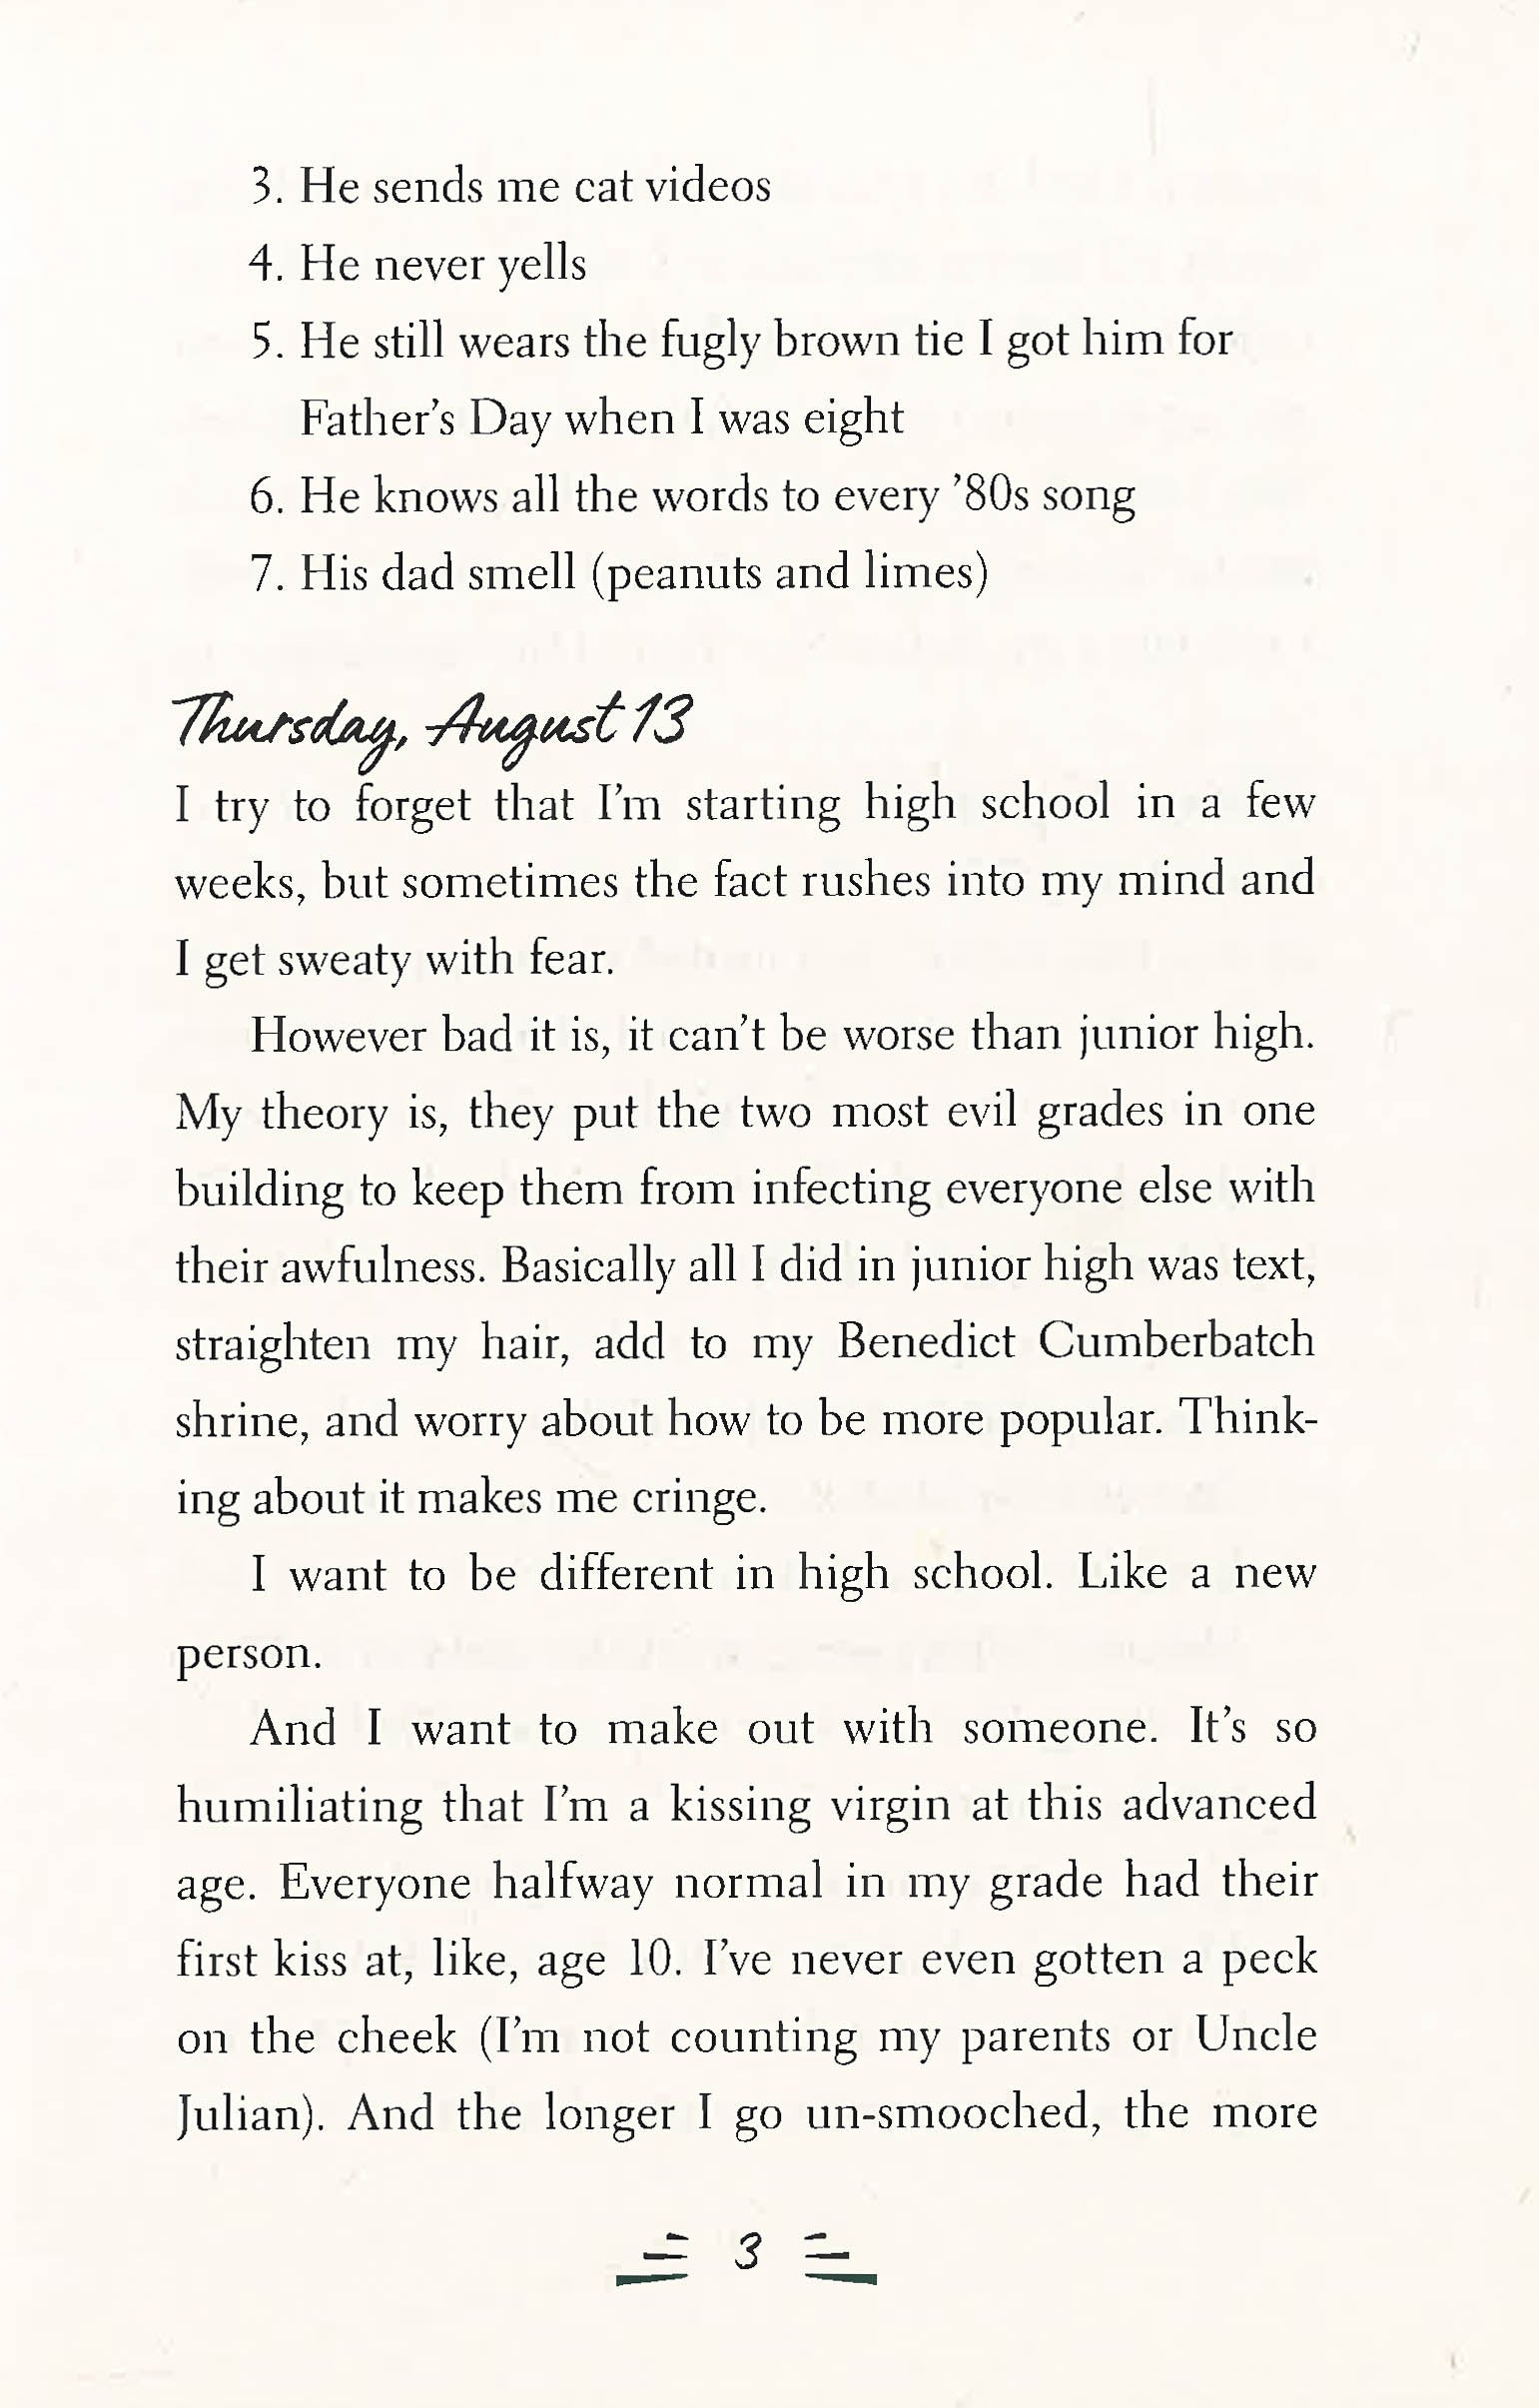 3. He sends me cat videos
4. He never yells
5. He still wears the fugly brown tie I got him for
Father’s Day when I was eight
6. He knows all the words to every ’80s song
7. His dad smell (peanuts and limes)
Thursday, August 13
I try to forget that I’m starting high school in a few
weeks, but sometimes the fact rushes into my mind and
I get sweaty with fear.
However bad it is, it can’t be worse than junior high.
My theory is, they put the two most evil grades in one
building to keep them from infecting everyone else with
their awfulness. Basically all I did in junior high was text,
straighten my hair, add to my Benedict Cumberbatch
shrine, and worry about how to be more popular. Think-
ing about it makes me cringe.
I want to be different in high school. Like a new
person.
And I want to make out with someone. It’s so
humiliating that I’m a kissing virgin at this advanced
age. Everyone halfway normal in my grade had their
first kiss at, like, age 10. I’ve never even gotten a peck
on the cheek (I’m not counting my parents or Uncle
Julian). And the longer I go un-smooched, the more
3